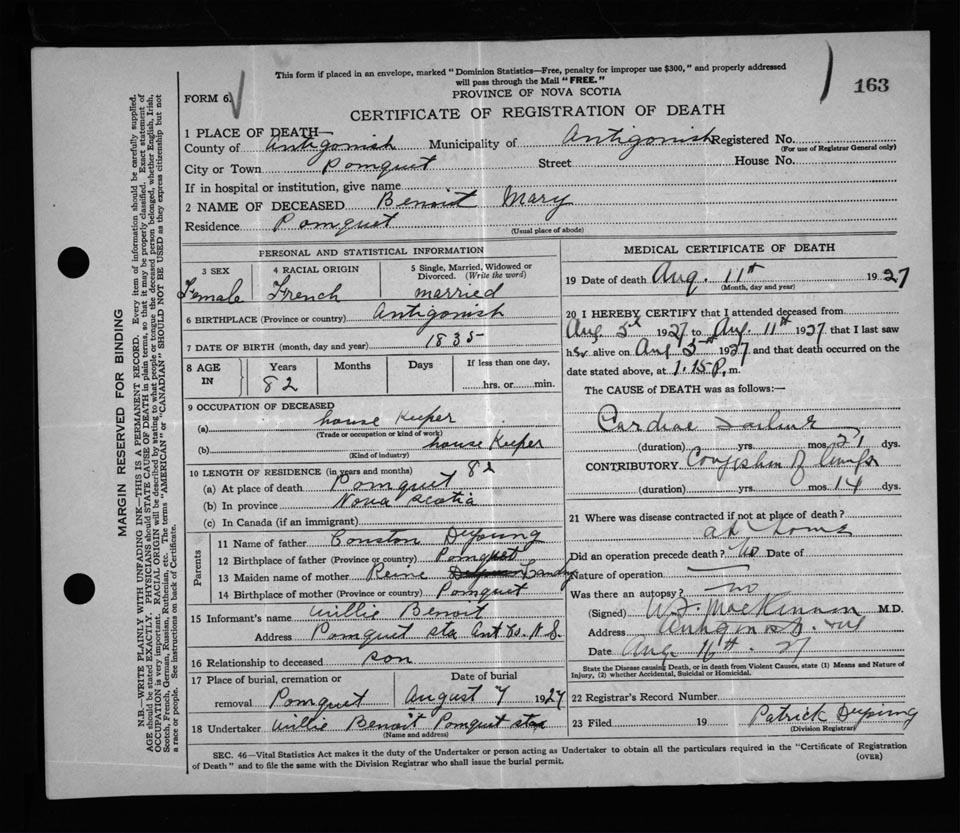 This form if placed in an envelope, marked "Dominion Statistics—Free, penalty for improper use $300," and properly addressed
will pass through the Mail "FREE."
163
FORM 6.
PROVINCE OF NOVA SCOTIA
CERTIFICATE OF REGISTRATION OF DEATH
1 PLACE OF DEATH—
County of Antigonish Municipality of Antigonish Registered No.
(For use of Registrar General only)
City or Town Pomquet Street House No.
If in hospital or institution, give name
2 NAME OF DECEASED Benoit Mary
Residence Pomquet
(Usual place of abode)
PERSONAL AND STATISTICAL INFORMATION
3 SEX 4 RACIAL ORIGIN 5 Single, Married, Widowed or
Divorced. (Write the word)
Female French married
6 BIRTHPLACE (Province or country) Antigonish
7 DATE OF BIRTH (month, day and year) 1835
8 AGE IN Years Months Days If less than one day,
82 hrs. or min.
9 OCCUPATION OF DECEASED
(a) house Keeper
(Trade or occupation or kind of work)
(b) house Keeper
(Kind of industry)
10 LENGTH OF RESIDENCE (in years and months) 82
(a) At place of death Pomquet
(b) In province Nova Scotia
(c) In Canada (if an immigrant)
Parents
11 Name of father
12 Birthplace of father (Province or country) Pomquet
13 Maiden name of mother Reine Landry
14 Birthplace of mother (Province or country) Pomquet
15 Informant's name Willie Benoit
Address Pomquet sta Ant Co. N.S.
16 Relationship to deceased son
17 Place of burial, cremation or Date of burial
removal Pomquet August 7 1927
18 Undertaker Willie Benoit Pomquet sta
(Name and address)
MEDICAL CERTIFICATE OF DEATH
19 Date of death Aug. 11th 1927
(Month, day and year)
20 I HEREBY CERTIFY that I attended deceased from
Aug 1927 to Aug. 11th 1927 that I last saw
her alive on Aug 1927 and that death occurred on the
date stated above, at 1.15 P. m.
The CAUSE of DEATH was as follows:—
Cardiac Failure
(duration) yrs. mos. 21 dys.
CONTRIBUTORY Congestion of lungs
(duration) yrs. mos. 14 dys.
21 Where was disease contracted if not at place of death?
at home
Did an operation precede death? No Date of
Nature of operation
Was there an autopsy? no
(Signed) W.F. MacKinnon M.D.
Address Antigonish. N.S.
Date Aug 16th. 27
State the Disease causing Death, or in death from Violent Causes, state (1) Means and Nature of
Injury, (2) whether Accidental, Suicidal or Homicidal.
22 Registrar's Record Number
23 Filed 19 Patrick
(Division Registrar)
SEC. 46—Vital Statistics Act makes it the duty of the Undertaker or person acting as Undertaker to obtain all the particulars required in the "Certificate of Registration
of Death" and to file the same with the Division Registrar who shall issue the burial permit.
(OVER)
MARGIN RESERVED FOR BINDING
N.B.—WRITE PLAINLY WITH UNFADING INK—THIS IS A PERMANENT RECORD. Every item of information should be carefully supplied.
AGE should be stated EXACTLY. PHYSICIANS should STATE CAUSE OF DEATH in plain terms, so that it may be properly classified. Exact statement of
OCCUPATION is very important. RACIAL ORIGIN will be described by stating to what people or tongue the deceased person belonged, whether English, Irish,
Scotch, French, German, Russian, Ruthenian, etc. The terms "AMERICAN" or "CANADIAN" SHOULD NOT BE USED as they express citizenship but not
a race or people. See instructions on back of Certificate.